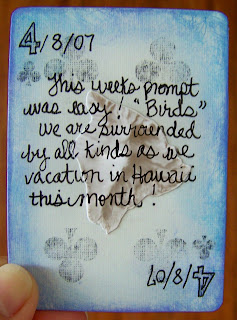 4/8/07
This weeks prompt
was easy! "Birds"
we are surrounded
by all kinds as we
vacation in Hawaii
this month!
4/8/07